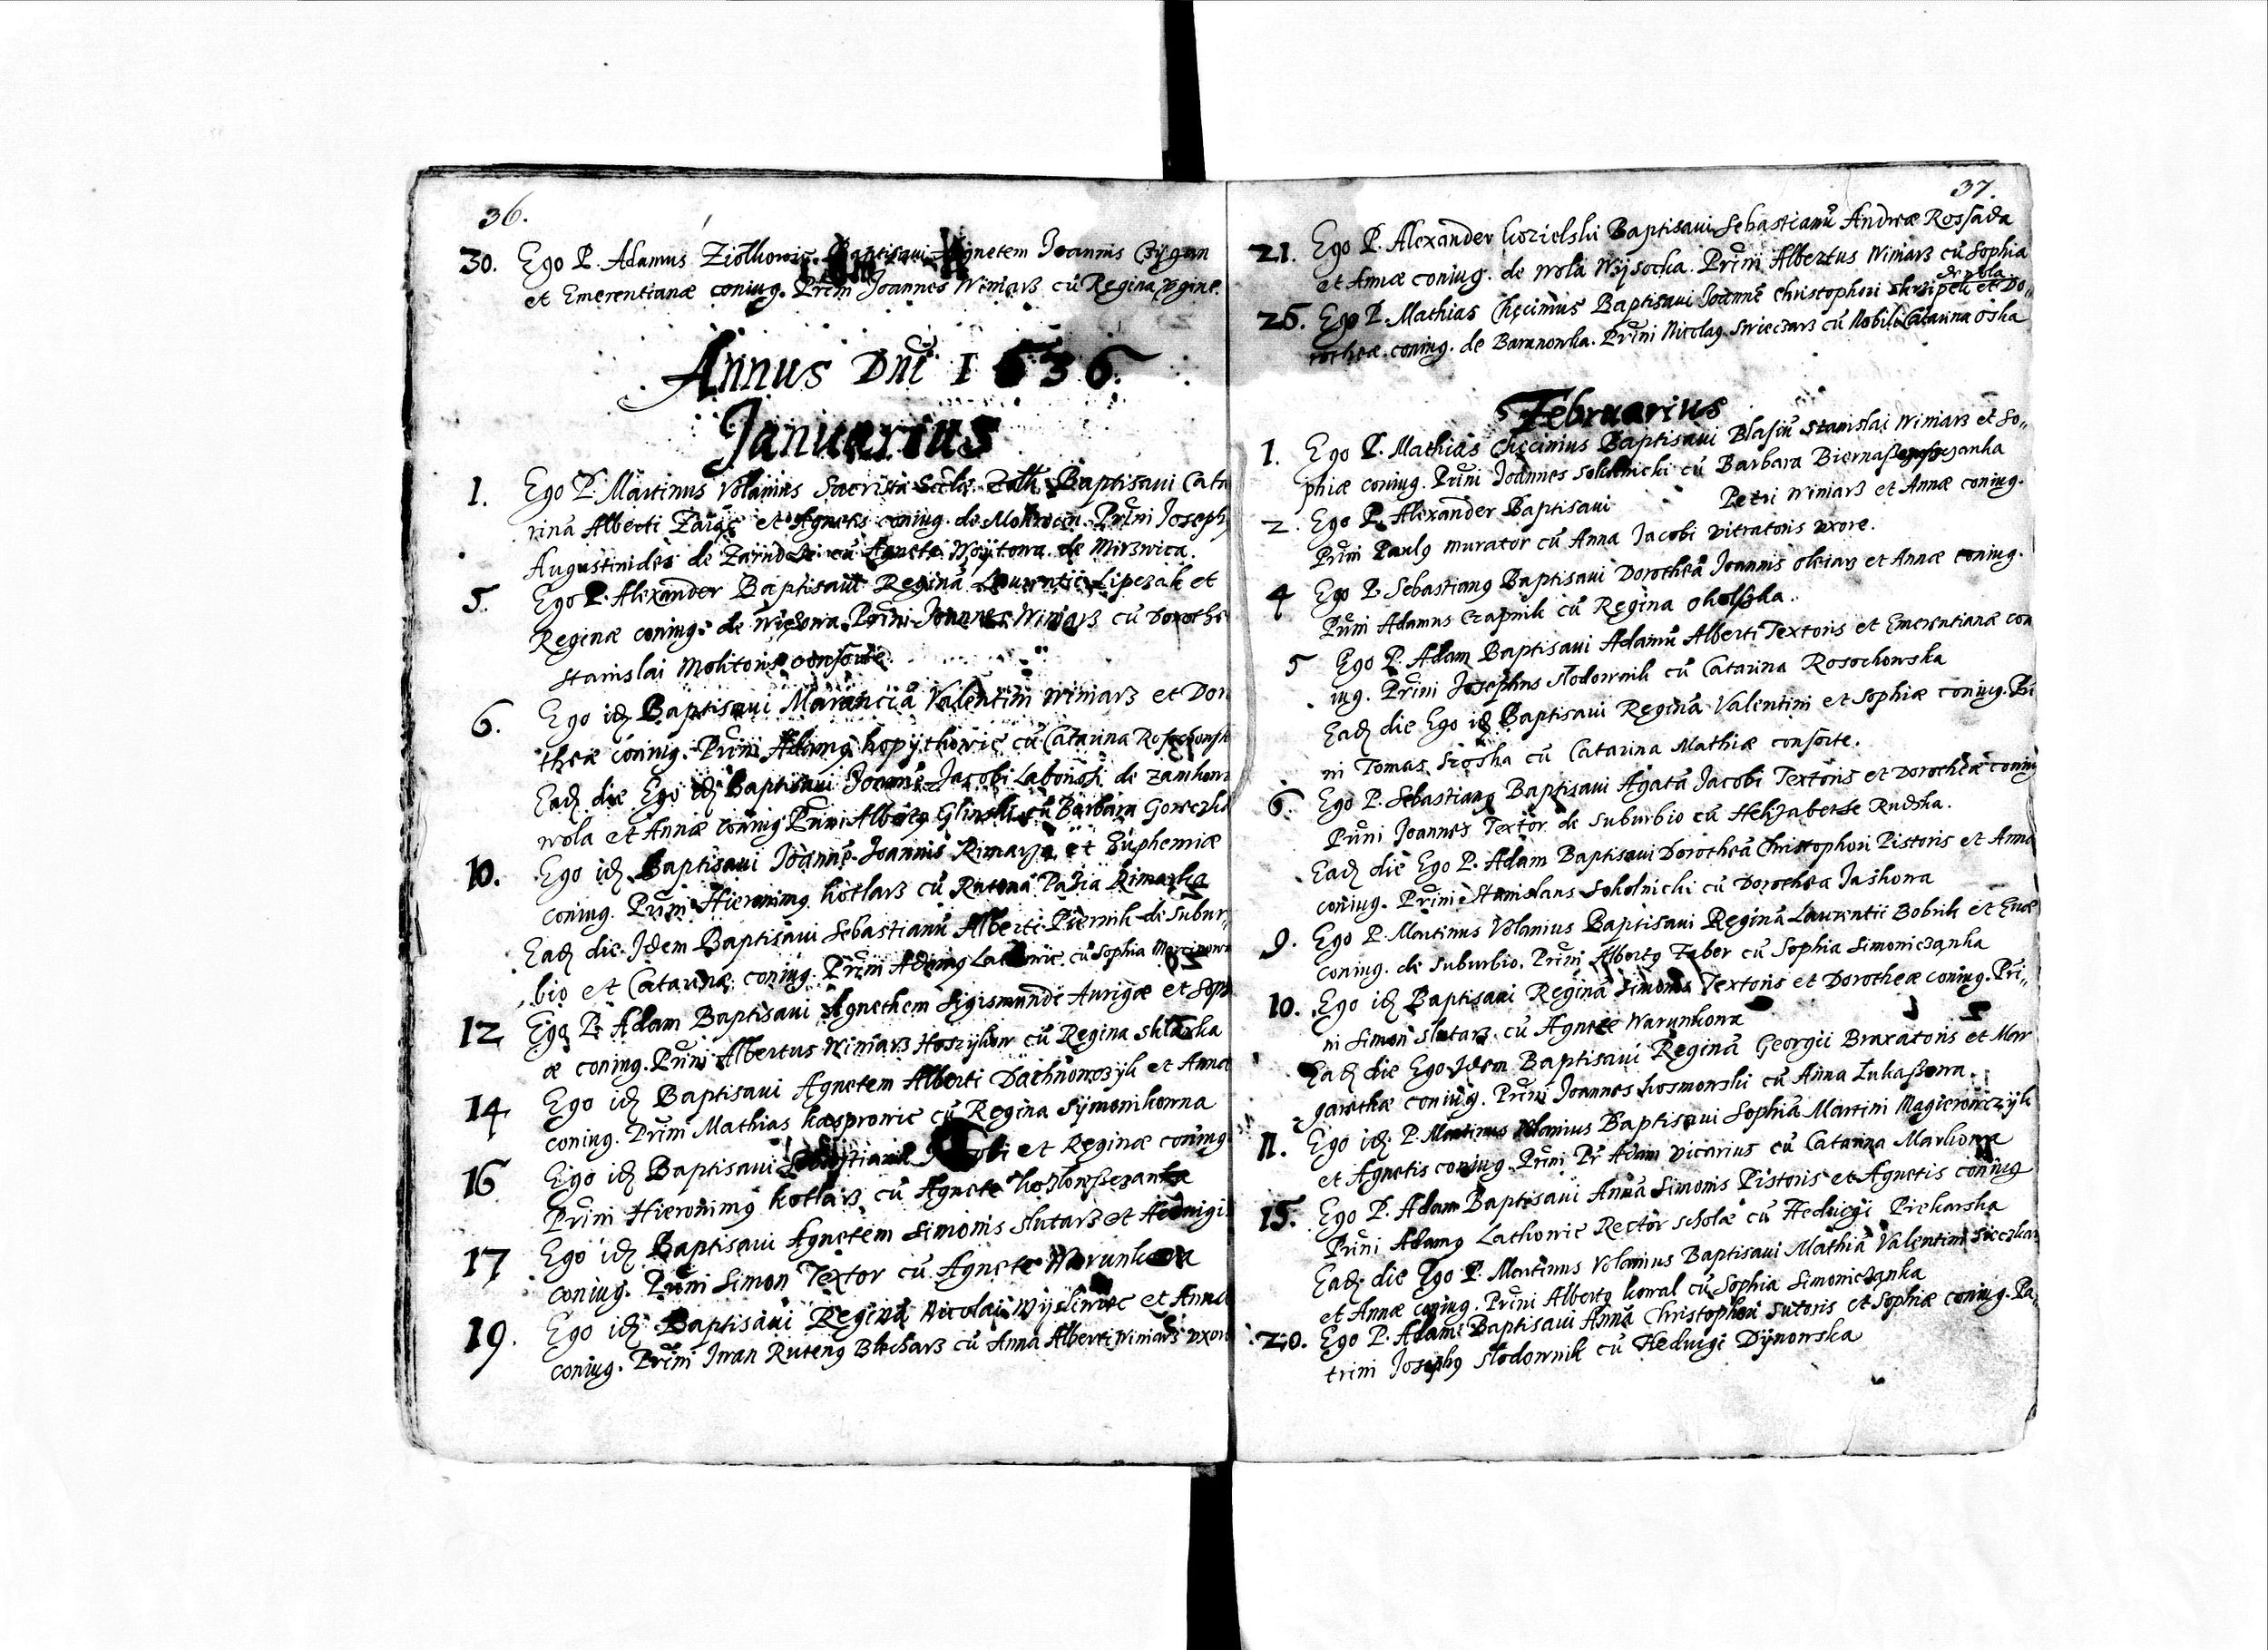 36.
30. Ego P. Adamus Ziolkowic Baptisaui Agnetem Joannis Czygan
et Emerentianæ coniug. Prini Joannes Winiarz cū Regina
Annus Dni 1636.
Januarius
1. Ego P. Martinus Volanius Sacrista Baptisaui Cata
rinā Alberti Zaiąc et Agnetis coniug. de Prini Joseph
Augustinides de cū Agnete Woytowa de Mirzwica.
5. Ego P. Alexander Baptisaui Reginā Laurentii Lipczak et
Reginæ coniug. de Prini Joannes Winiarz cū Dorothe
Stanislai Molitoris consorte.
6. Ego idȝ Baptisaui Valentini Winiarz et Doro
theæ coniug. Prini Adamꝰ kopythowic cū Catarina
Eadȝ die Ego idȝ Baptisaui Joannē Jacobi de Zamkowa
wola et Annæ coniug. Prini Albertꝰ Glinski cū Barbara
10. Ego idȝ Baptisaui Joannē Joannis Rimarza et Euphemiæ
coniug. Prini Hieronimꝰ kotlarz cū Rutena Pazia Rimarka
Eadȝ die Idem Baptisaui Sebastianū Alberti Piernik de Subur„
bio et Catarinæ coniug. Prini Adamꝰ cū Sophia
12 Ego P. Adam Baptisaui Agnethem Sigismundi Aurigæ et Soph
æ coniug. Prini Albertus Winiarz cū Regina
14 Ego idȝ Baptisaui Agnetem Alberti et Annæ
coniug. Prini Mathias kasprowic cū Regina Symonikowna
16 Ego idȝ Baptisaui Jacobi et Reginæ coniug
Prini Hieronimꝰ kotlarz cū Agnete
17 Ego idȝ Baptisaui Agnetem Simonis Slutarz et Hedvigis
coniug. Prini Simon Textor cū Agnete Warunkowa
19. Ego idȝ Baptisaui Reginā Nicolai et Annæ
coniug. Prini Iwan Rutenꝰ Blecharz cū Anna Alberti Winiarz vxore
37.
21. Ego P. Alexander kozielski Baptisaui Sebastianū Andreæ Rossada
et Annæ coniug. de Wola Wysocka. Prini Albertus Winiarz cū Sophia
26. Ego P. Mathias Chęcinius Baptisaui Joannē Christophori et Do„
rotheæ coniug. de Baranowka. Prini Nicolaꝰ Swieczarz cū Nobili Catarina
Februarius
1. Ego P. Mathias Chęcinius Baptisaui Blasiū Stanislai Winiarz et So„
phiæ coniug. Prini Joannes Sokolnicki cū Barbara
2. Ego P. Alexander Baptisaui Petri Winiarz et Annæ coniug.
Prini Paulꝰ murator cū Anna Jacobi vitratoris vxore.
4 Ego P. Sebastianꝰ Baptisaui Dorotheā Joannis Oleiarz et Annæ coniug.
Prini Adamus Czapnik cū Regina
5 Ego P. Adam Baptisaui Adamū Alberti Textoris et Emerentianæ con
iug. Prini Josephus Slodownik cū Catarina Rosochowska
Eadȝ die Ego idȝ Baptisaui Reginā Valentini et Sophiæ coniug. Pri
ni Tomas cū Catarina Mathiæ consorte.
6. Ego P. Sebastianꝰ Baptisaui Agatā Jacobi Textoris et Dorotheæ coniug
Prini Joannes Textor de Suburbio cū Rudzka.
Eadȝ die Ego P. Adam Baptisaui Dorotheā Christophori Pistoris et Anna
coniug. Prini Stanislaus Sokolnicki cū Dorothea Jaskowa
9. Ego P. Martinus Volanius Baptisaui Reginā Laurentii Bobrik et Euæ
coniug. de Suburbio. Prini Albertꝰ Faber cū Sophia Simoniczanka
10. Ego idȝ Baptisaui Reginā Simonis Textoris et Dorotheæ coniug. Pri„
ni Simon Slutarz cū Agnete Warunkowa
Eadȝ die Ego Idem Baptisaui Reginā Georgii Braxatoris et Mar
garethæ coniug. Prini Joannes kosmowski cū Anna Łukaszowa.
11. Ego idȝ P. Martinus Volanius Baptisaui Sophiā Martini Magierowczyk
et Agnetis coniug. Prini Pr Adam vicarius cū Catarina Markowa
15. Ego P. Adam Baptisaui Annā Simonis Pistoris et Agnetis coniug
Prini Adamꝰ Lathowic Rector scholæ cū Hedvigi Piekarska
Eadȝ die Ego P. Martinus Volanius Baptisaui Mathiā Valentini
et Annæ coniug. Prini Albertꝰ kowal cū Sophia Simoniczanka
20. Ego P. Adam Baptisaui Annā Christophori Sutoris et Sophiæ coniug. Pa„
trini Josephꝰ Slodownik cū Hedvigi Dynowska